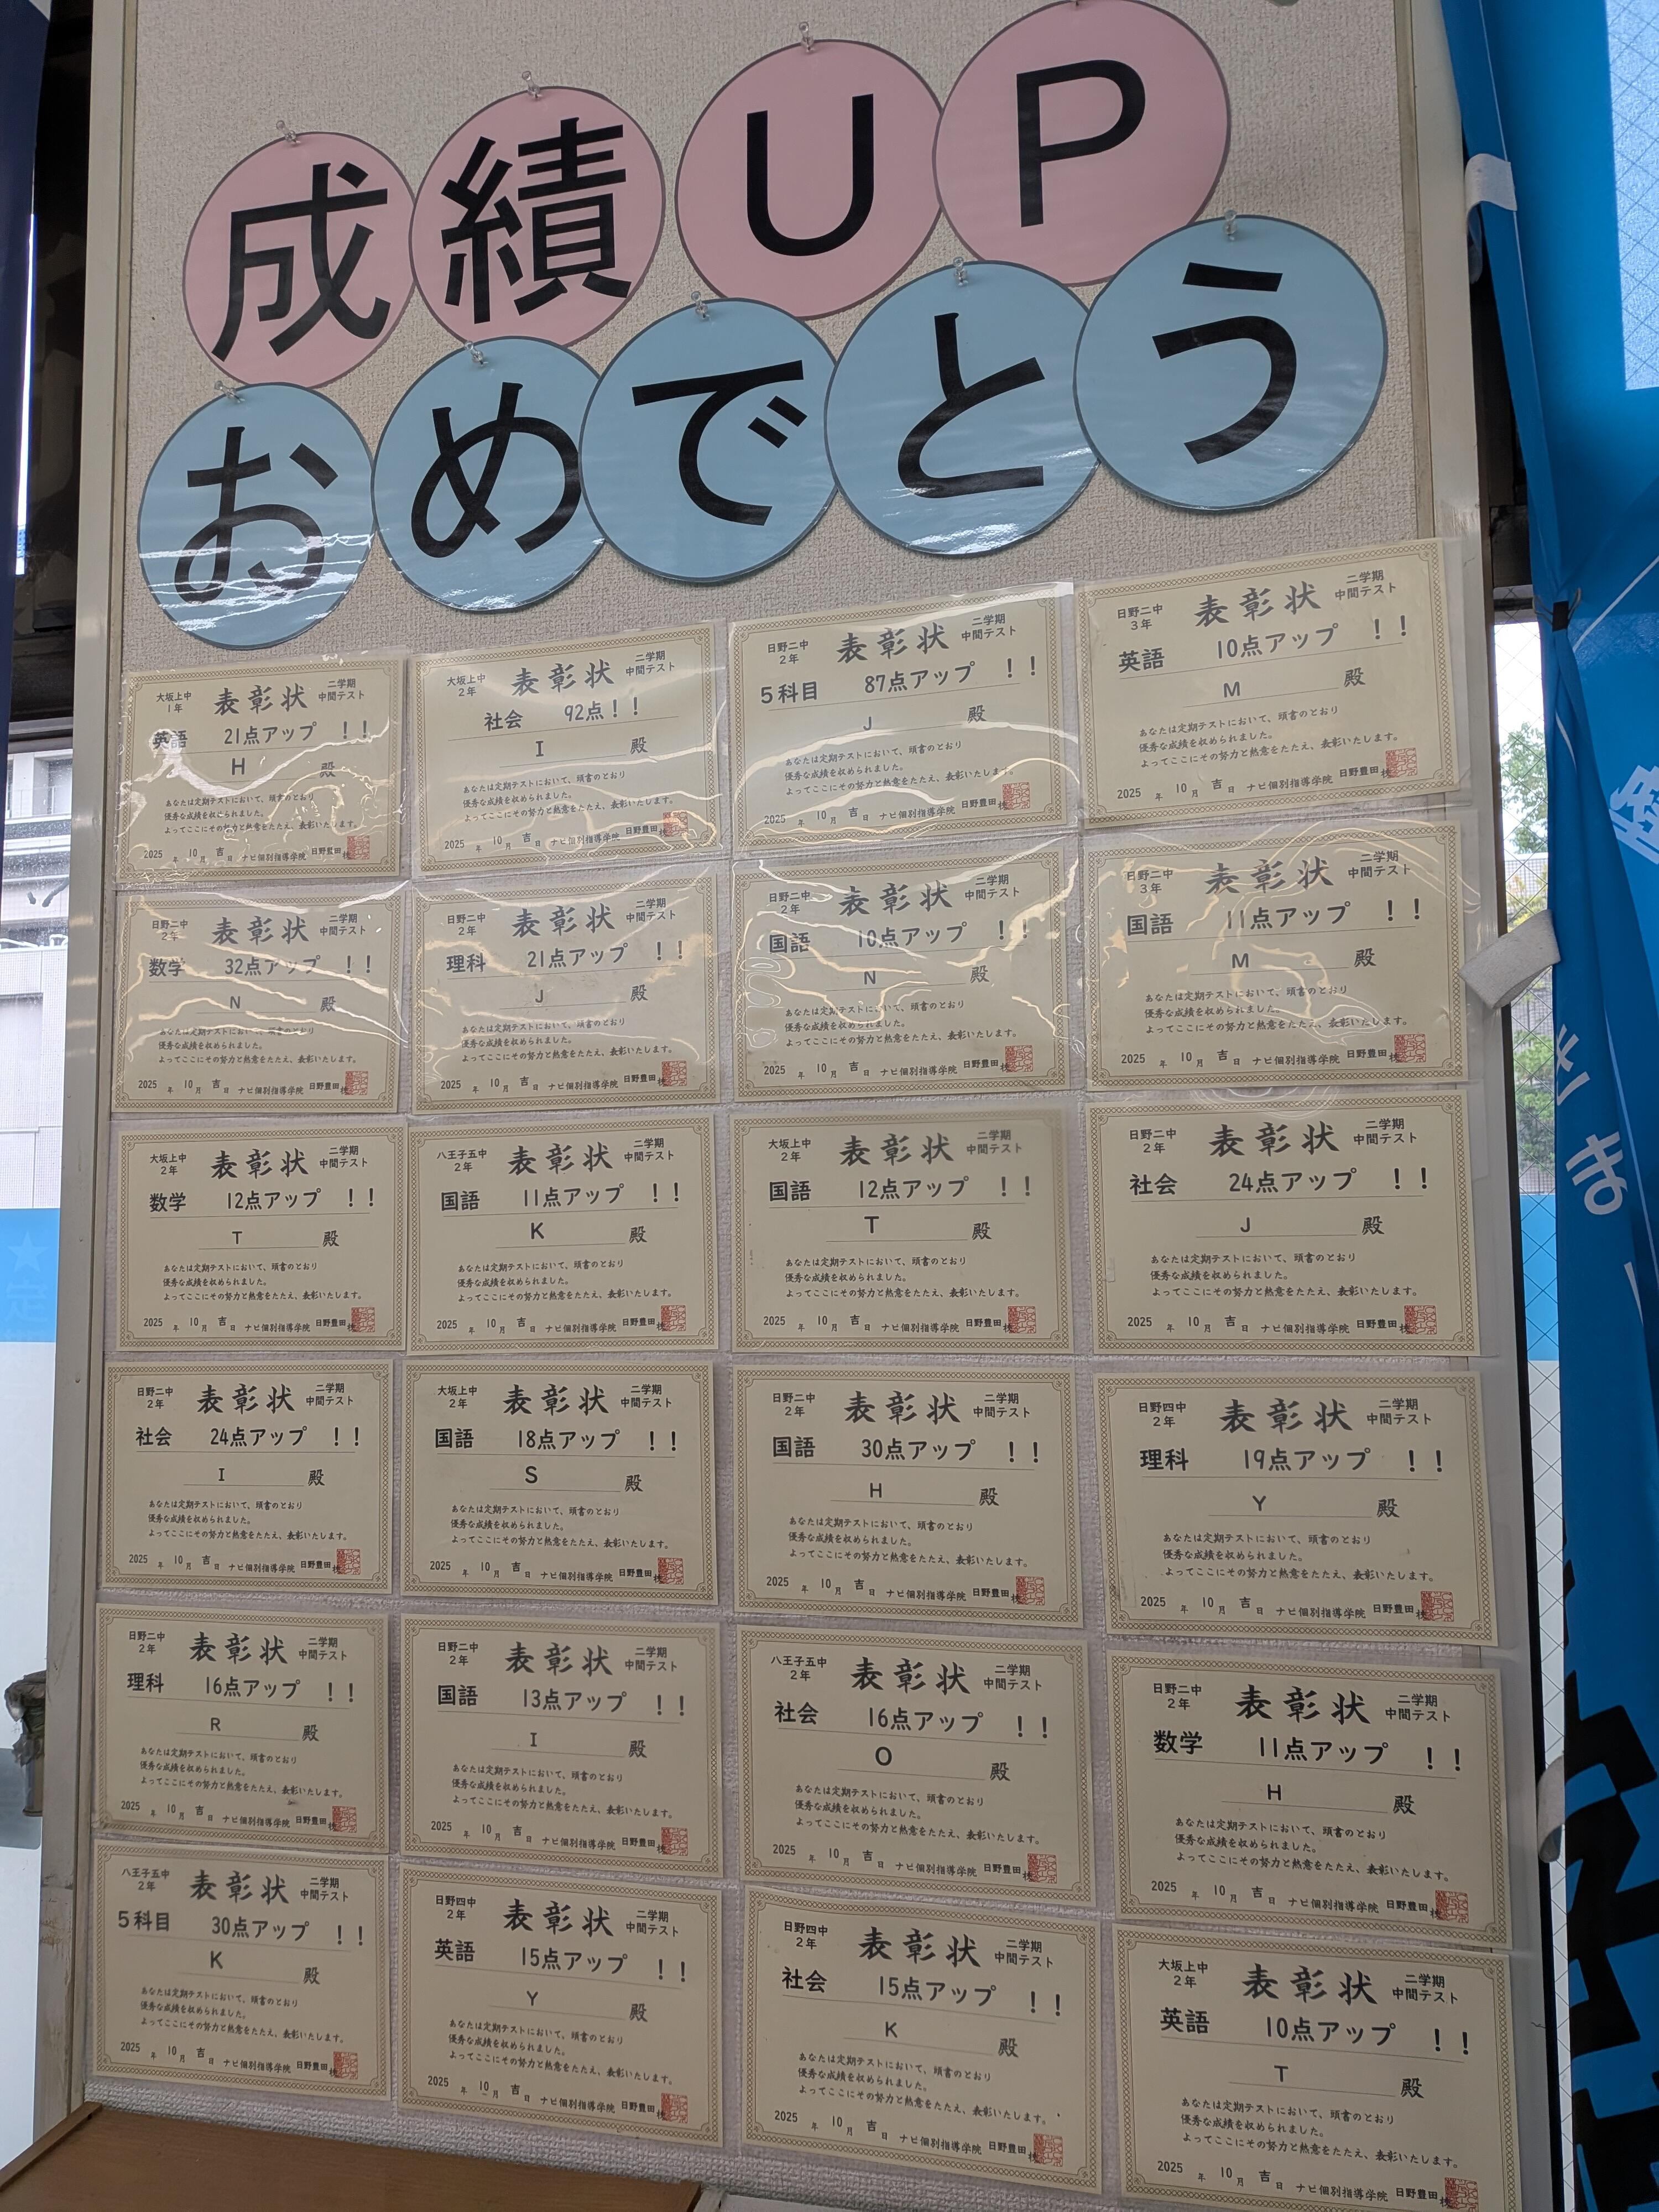 成績UP
おめでとう
大坂上中 1年 表彰状 二学期 中間テスト
英語 21点アップ !!
H 殿
あなたは定期テストにおいて、頭書のとおり
優秀な成績を収められました。
よってここにその努力と熱意をたたえ、表彰いたします。
2025 年 10 月 吉 日 ナビ個別指導学院 日野豊田校
大坂上中 2年 表彰状 二学期 中間テスト
社会 92点!!
I 殿
あなたは定期テストにおいて、頭書のとおり
優秀な成績を収められました。
よってここにその努力と熱意をたたえ、表彰いたします。
2025 年 10 月 吉 日 ナビ個別指導学院 日野豊田校
日野二中 2年 表彰状 二学期 中間テスト
5科目 87点アップ !!
J 殿
あなたは定期テストにおいて、頭書のとおり
優秀な成績を収められました。
よってここにその努力と熱意をたたえ、表彰いたします。
2025 年 10 月 吉 日 ナビ個別指導学院 日野豊田校
日野二中 3年 表彰状 二学期 中間テスト
英語 10点アップ !!
M 殿
あなたは定期テストにおいて、頭書のとおり
優秀な成績を収められました。
よってここにその努力と熱意をたたえ、表彰いたします。
2025 年 10 月 吉 日 ナビ個別指導学院 日野豊田校
日野二中 2年 表彰状 二学期 中間テスト
数学 32点アップ !!
N 殿
あなたは定期テストにおいて、頭書のとおり
優秀な成績を収められました。
よってここにその努力と熱意をたたえ、表彰いたします。
2025 年 10 月 吉 日 ナビ個別指導学院 日野豊田校
日野二中 2年 表彰状 二学期 中間テスト
理科 21点アップ !!
J 殿
あなたは定期テストにおいて、頭書のとおり
優秀な成績を収められました。
よってここにその努力と熱意をたたえ、表彰いたします。
2025 年 10 月 吉 日 ナビ個別指導学院 日野豊田校
日野二中 2年 表彰状 二学期 中間テスト
国語 10点アップ !!
N 殿
あなたは定期テストにおいて、頭書のとおり
優秀な成績を収められました。
よってここにその努力と熱意をたたえ、表彰いたします。
2025 年 10 月 吉 日 ナビ個別指導学院 日野豊田校
日野二中 3年 表彰状 二学期 中間テスト
国語 11点アップ !!
M 殿
あなたは定期テストにおいて、頭書のとおり
優秀な成績を収められました。
よってここにその努力と熱意をたたえ、表彰いたします。
2025 年 10 月 吉 日 ナビ個別指導学院 日野豊田校
大坂上中 2年 表彰状 二学期 中間テスト
数学 12点アップ !!
T 殿
あなたは定期テストにおいて、頭書のとおり
優秀な成績を収められました。
よってここにその努力と熱意をたたえ、表彰いたします。
2025 年 10 月 吉 日 ナビ個別指導学院 日野豊田校
八王子五中 2年 表彰状 二学期 中間テスト
国語 11点アップ !!
K 殿
あなたは定期テストにおいて、頭書のとおり
優秀な成績を収められました。
よってここにその努力と熱意をたたえ、表彰いたします。
2025 年 10 月 吉 日 ナビ個別指導学院 日野豊田校
大坂上中 2年 表彰状 二学期 中間テスト
国語 12点アップ !!
T 殿
あなたは定期テストにおいて、頭書のとおり
優秀な成績を収められました。
よってここにその努力と熱意をたたえ、表彰いたします。
2025 年 10 月 吉 日 ナビ個別指導学院 日野豊田校
日野二中 2年 表彰状 二学期 中間テスト
社会 24点アップ !!
J 殿
あなたは定期テストにおいて、頭書のとおり
優秀な成績を収められました。
よってここにその努力と熱意をたたえ、表彰いたします。
2025 年 10 月 吉 日 ナビ個別指導学院 日野豊田校
日野二中 2年 表彰状 二学期 中間テスト
社会 24点アップ !!
I 殿
あなたは定期テストにおいて、頭書のとおり
優秀な成績を収められました。
よってここにその努力と熱意をたたえ、表彰いたします。
2025 年 10 月 吉 日 ナビ個別指導学院 日野豊田校
大坂上中 2年 表彰状 二学期 中間テスト
国語 18点アップ !!
S 殿
あなたは定期テストにおいて、頭書のとおり
優秀な成績を収められました。
よってここにその努力と熱意をたたえ、表彰いたします。
2025 年 10 月 吉 日 ナビ個別指導学院 日野豊田校
日野二中 2年 表彰状 二学期 中間テスト
国語 30点アップ !!
H 殿
あなたは定期テストにおいて、頭書のとおり
優秀な成績を収められました。
よってここにその努力と熱意をたたえ、表彰いたします。
2025 年 10 月 吉 日 ナビ個別指導学院 日野豊田校
日野四中 2年 表彰状 二学期 中間テスト
理科 19点アップ !!
Y 殿
あなたは定期テストにおいて、頭書のとおり
優秀な成績を収められました。
よってここにその努力と熱意をたたえ、表彰いたします。
2025 年 10 月 吉 日 ナビ個別指導学院 日野豊田校
日野二中 2年 表彰状 二学期 中間テスト
理科 16点アップ !!
R 殿
あなたは定期テストにおいて、頭書のとおり
優秀な成績を収められました。
よってここにその努力と熱意をたたえ、表彰いたします。
2025 年 10 月 吉 日 ナビ個別指導学院 日野豊田校
日野二中 2年 表彰状 二学期 中間テスト
国語 13点アップ !!
I 殿
あなたは定期テストにおいて、頭書のとおり
優秀な成績を収められました。
よってここにその努力と熱意をたたえ、表彰いたします。
2025 年 10 月 吉 日 ナビ個別指導学院 日野豊田校
八王子五中 2年 表彰状 二学期 中間テスト
社会 16点アップ !!
O 殿
あなたは定期テストにおいて、頭書のとおり
優秀な成績を収められました。
よってここにその努力と熱意をたたえ、表彰いたします。
2025 年 10 月 吉 日 ナビ個別指導学院 日野豊田校
日野二中 2年 表彰状 二学期 中間テスト
数学 11点アップ !!
H 殿
あなたは定期テストにおいて、頭書のとおり
優秀な成績を収められました。
よってここにその努力と熱意をたたえ、表彰いたします。
2025 年 10 月 吉 日 ナビ個別指導学院 日野豊田校
八王子五中 2年 表彰状 二学期 中間テスト
5科目 30点アップ !!
K 殿
あなたは定期テストにおいて、頭書のとおり
優秀な成績を収められました。
よってここにその努力と熱意をたたえ、表彰いたします。
2025 年 10 月 吉 日 ナビ個別指導学院 日野豊田校
日野四中 2年 表彰状 二学期 中間テスト
英語 15点アップ !!
Y 殿
あなたは定期テストにおいて、頭書のとおり
優秀な成績を収められました。
よってここにその努力と熱意をたたえ、表彰いたします。
2025 年 10 月 吉 日 ナビ個別指導学院 日野豊田校
日野四中 2年 表彰状 二学期 中間テスト
社会 15点アップ !!
K 殿
あなたは定期テストにおいて、頭書のとおり
優秀な成績を収められました。
よってここにその努力と熱意をたたえ、表彰いたします。
2025 年 10 月 吉 日 ナビ個別指導学院 日野豊田校
大坂上中 2年 表彰状 二学期 中間テスト
英語 10点アップ !!
T 殿
あなたは定期テストにおいて、頭書のとおり
優秀な成績を収められました。
よってここにその努力と熱意をたたえ、表彰いたします。
2025 年 10 月 吉 日 ナビ個別指導学院 日野豊田